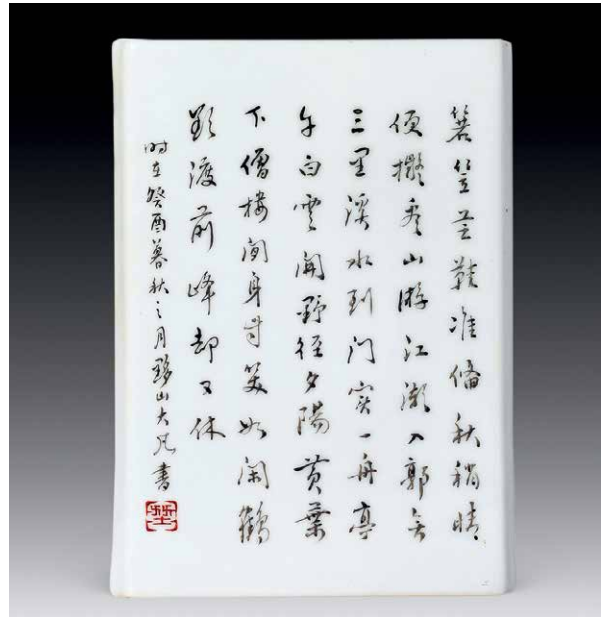 箬笠芒鞋准備秋稍晴
便擬看山游江潮入郭無
三里溪水到門容一舟亭
午白雲開野徑夕陽黃葉
下僧樓閒身笑如閑鶴
欲渡前峰却又休
时在癸酉暮秋之月黟山大凡書